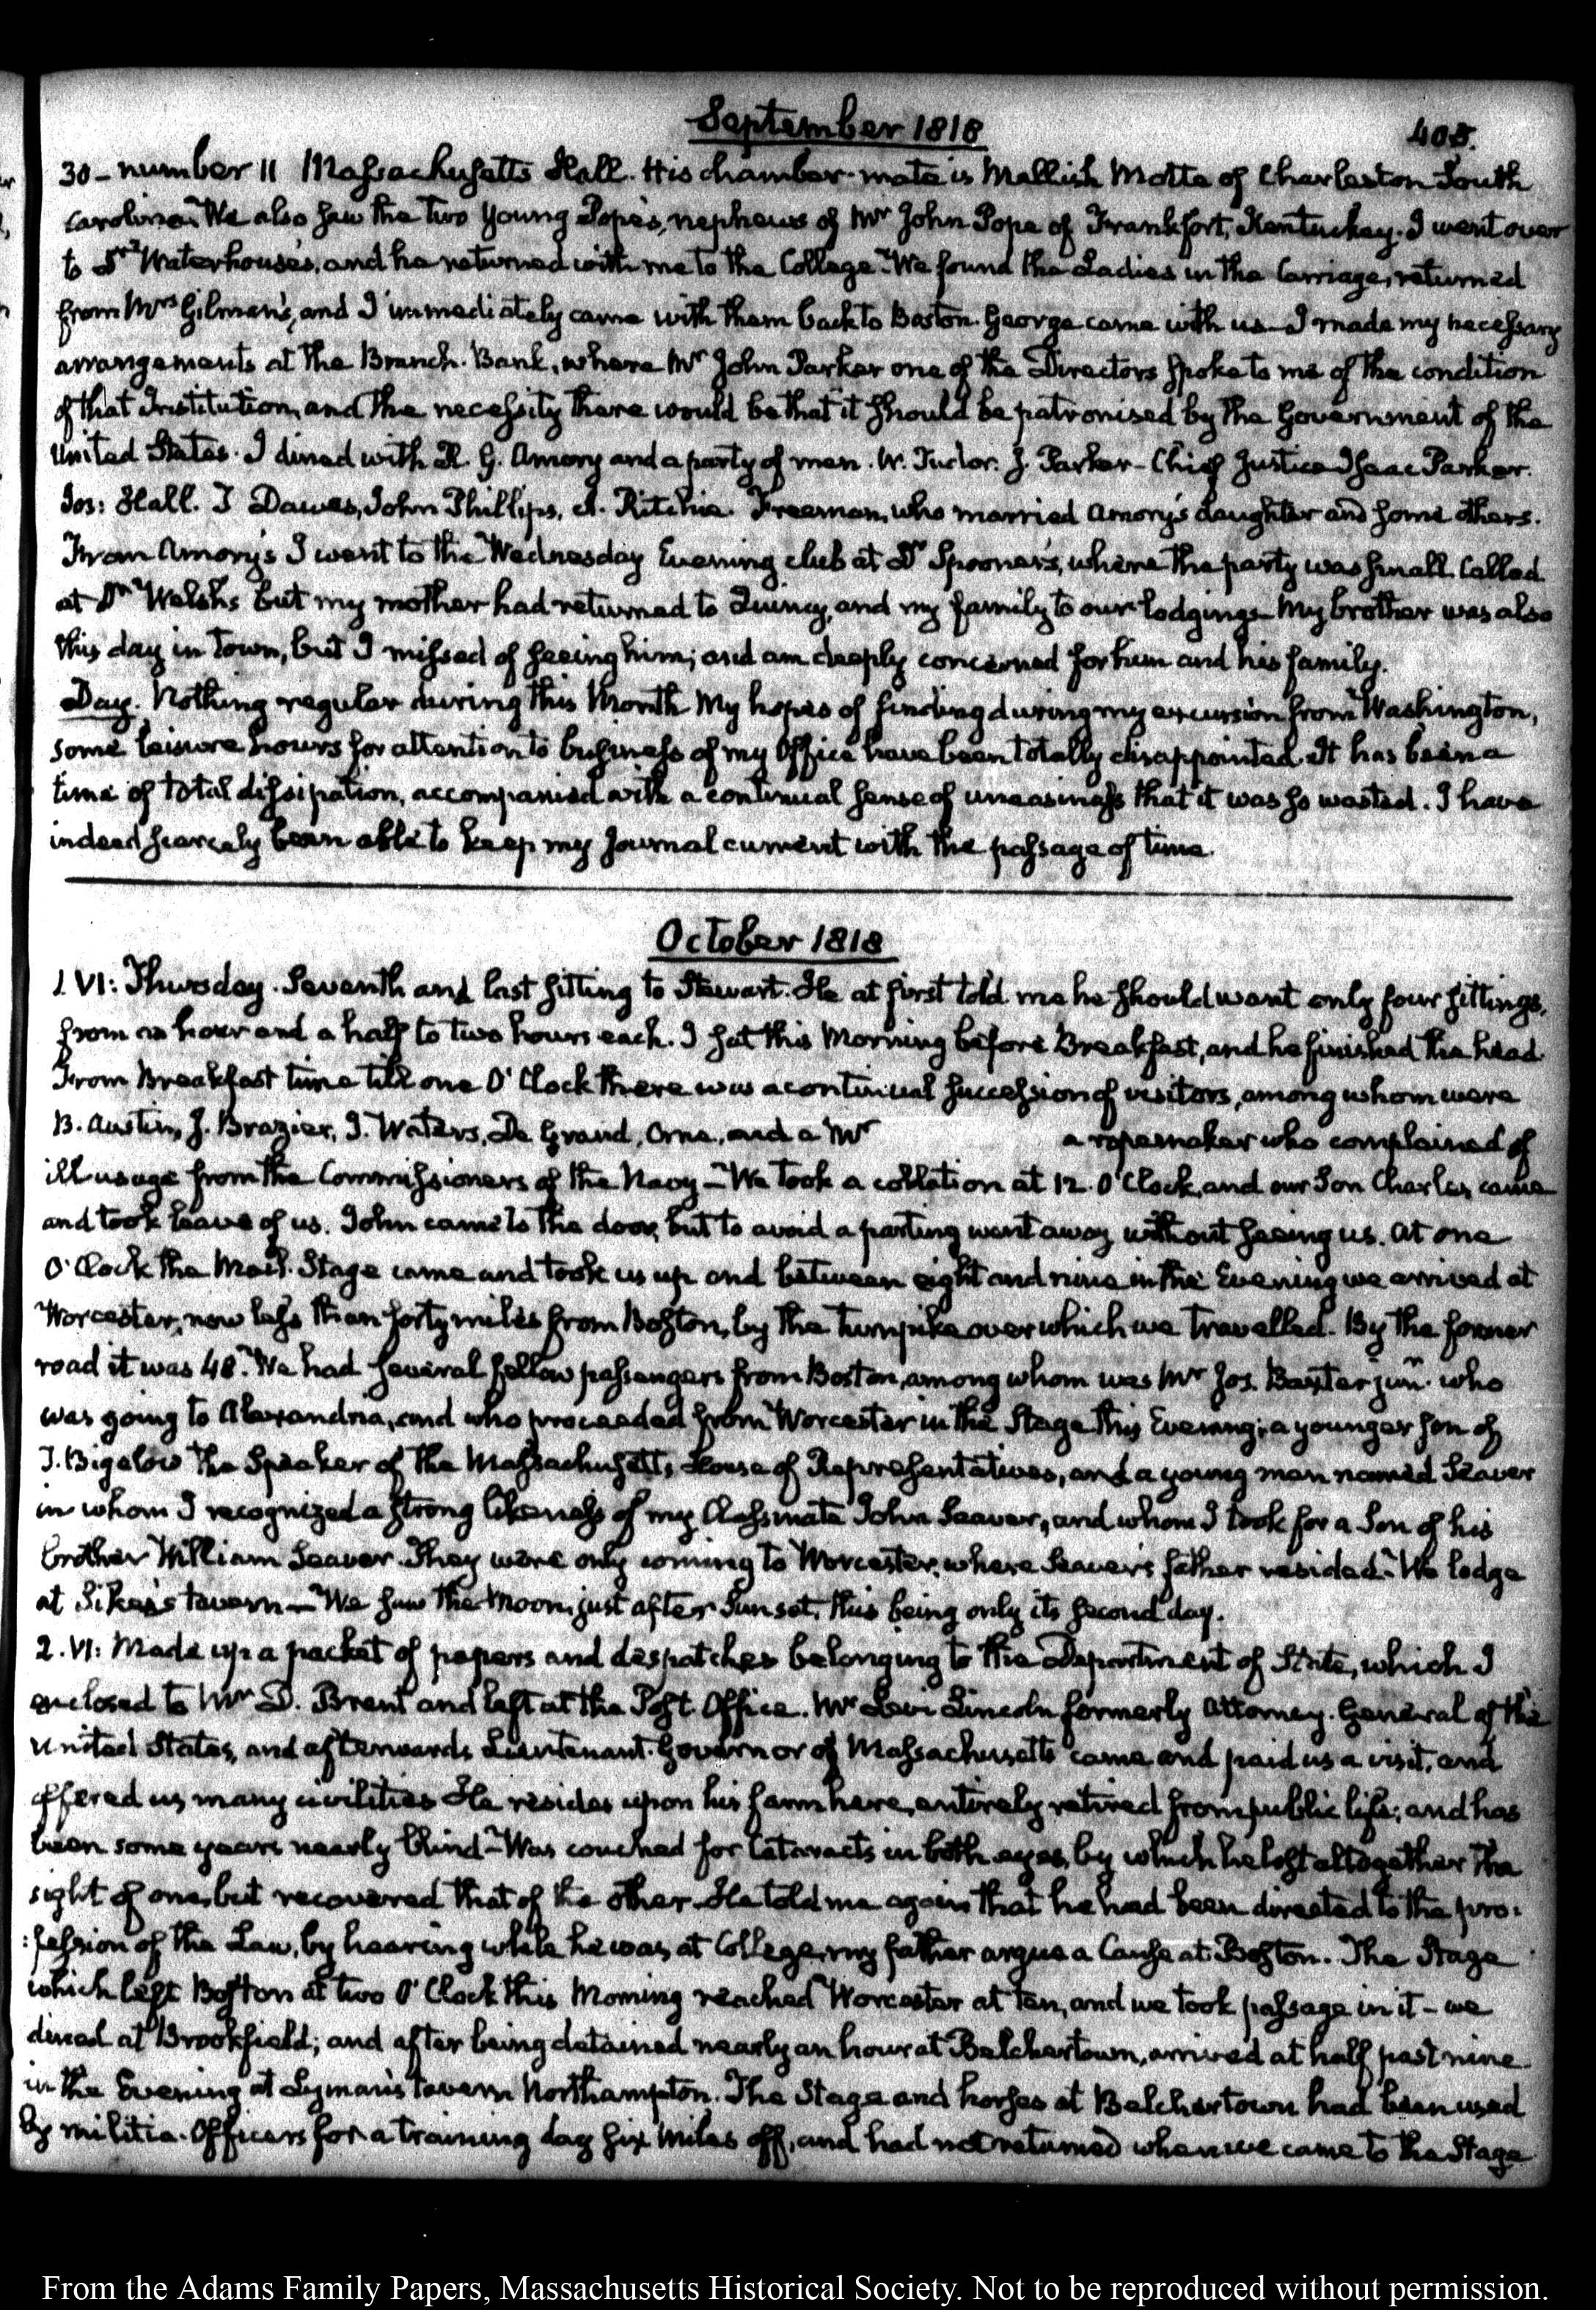 September 1818
405.
30 - number 11 Massachusetts Hall. His chamber-mate is Mellish Motte of Charleston South
Carolina. We also saw the two young Pope's, nephews of Mr John Pope of Frankfort, Kentucky. I went over
to Dr Waterhouse's, and he returned with me to the College. We found the Ladies in the Carriage, returned
from Mrs Gilman's, and I immediately came with them back to Boston. George came with us - I made my necessary
arrangements at the Branch-Bank, where Mr John Parker one of the Directors spoke to me of the condition
of that Institution, and the necessity there would be that it should be patronised by the Government of the
United States. I dined with R. G. Amory and a party of men. W. Tudor. J. Parker - Chief Justice Isaac Parker.
Jos: Hall. T Dawes, John Phillips, A. Ritchie. Freeman, who married Amory's daughter and some others.
From Amory's I went to the Wednesday Evening club at Dr Spooner's, where the party was small. Called
at Dr Welsh's but my mother had returned to Quincy, and my family to our lodgings - My brother was also
this day in town, but I missed of seeing him; and am deeply concerned for him and his family.
Day. Nothing regular during this Month. My hopes of finding during my excursion from Washington,
some leisure hours for attention to business of my Office have been totally disappointed. It has been a
time of total dissipation, accompanied with a continual sense of uneasiness that it was so wasted. I have
indeed scarcely been able to keep my journal current with the passage of time.
October 1818
1. VI: Thursday. Seventh and last sitting to Stewart. He at first told me he should want only four sittings,
from an hour and a half to two hours each. I sat this Morning before Breakfast, and he finished the head.
From Breakfast time till one O'Clock there was a continual succession of visitors, among whom were
B. Austin, J. Brazier, J. Waters, De Grand, Orne, and a Mr a ropemaker who complained of
ill usage from the Commissioners of the Navy - We took a collation at 12. O'Clock, and our Son Charles came
and took leave of us. John came to the door, but to avoid a parting went away without seeing us. At one
O'Clock the Mail-Stage came and took us up and between eight and nine in the Evening we arrived at
Worcester, now less than forty miles from Boston, by the turnpike over which we travelled. By the former
road it was 48. We had several fellow passengers from Boston, among whom was Mr Jos. Baxter junr. who
was going to Alexandria, and who proceeded from Worcester in the Stage this Evening; a younger son of
T. Bigelow the Speaker of the Massachusetts House of Representatives, and a young man named Seaver
in whom I recognized a strong likeness of my Classmate John Seaver, and whom I took for a Son of his
brother William Seaver. They were only coming to Worcester, where Seaver's father resided. We lodge
at Sikes's tavern - We saw the Moon, just after Sunset, this being only its second day.
2. VI: Made up a packet of papers and despatches belonging to the Department of State, which I
enclosed to Mr D. Brent and left at the Post-Office. Mr Levi Lincoln formerly Attorney-General of the
United States, and afterwards Lieutenant-Governor of Massachusetts came and paid us a visit, and
offered us many civilities. He resides upon his farm here, entirely retired from public life; and has
been some years nearly blind - Was couched for Cataracts in both eyes, by which he lost altogether the
sight of one, but recovered that of the other. He told me again that he had been directed to the pro-
:fession of the Law, by hearing while he was at College, my father argue a Cause at Boston. The Stage
which left Boston at two O'Clock this Morning reached Worcester at ten, and we took passage in it - we
dined at Brookfield; and after being detained nearly an hour at Belchertown, arrived at half past nine
in the Evening at Lyman's tavern Northampton. The Stage and horses at Belchertown had been used
by militia-Officers for a training day six miles off, and had not returned when we came to the Stage
From the Adams Family Papers, Massachusetts Historical Society. Not to be reproduced without permission.